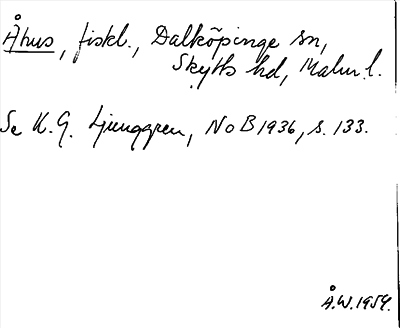 Åhus, fiskl., Dalköpinge sn,
Skytts hd, Malm. l.
Se K. G. Ljunggren, NoB 1936, s. 133.
Å.W. 1959.